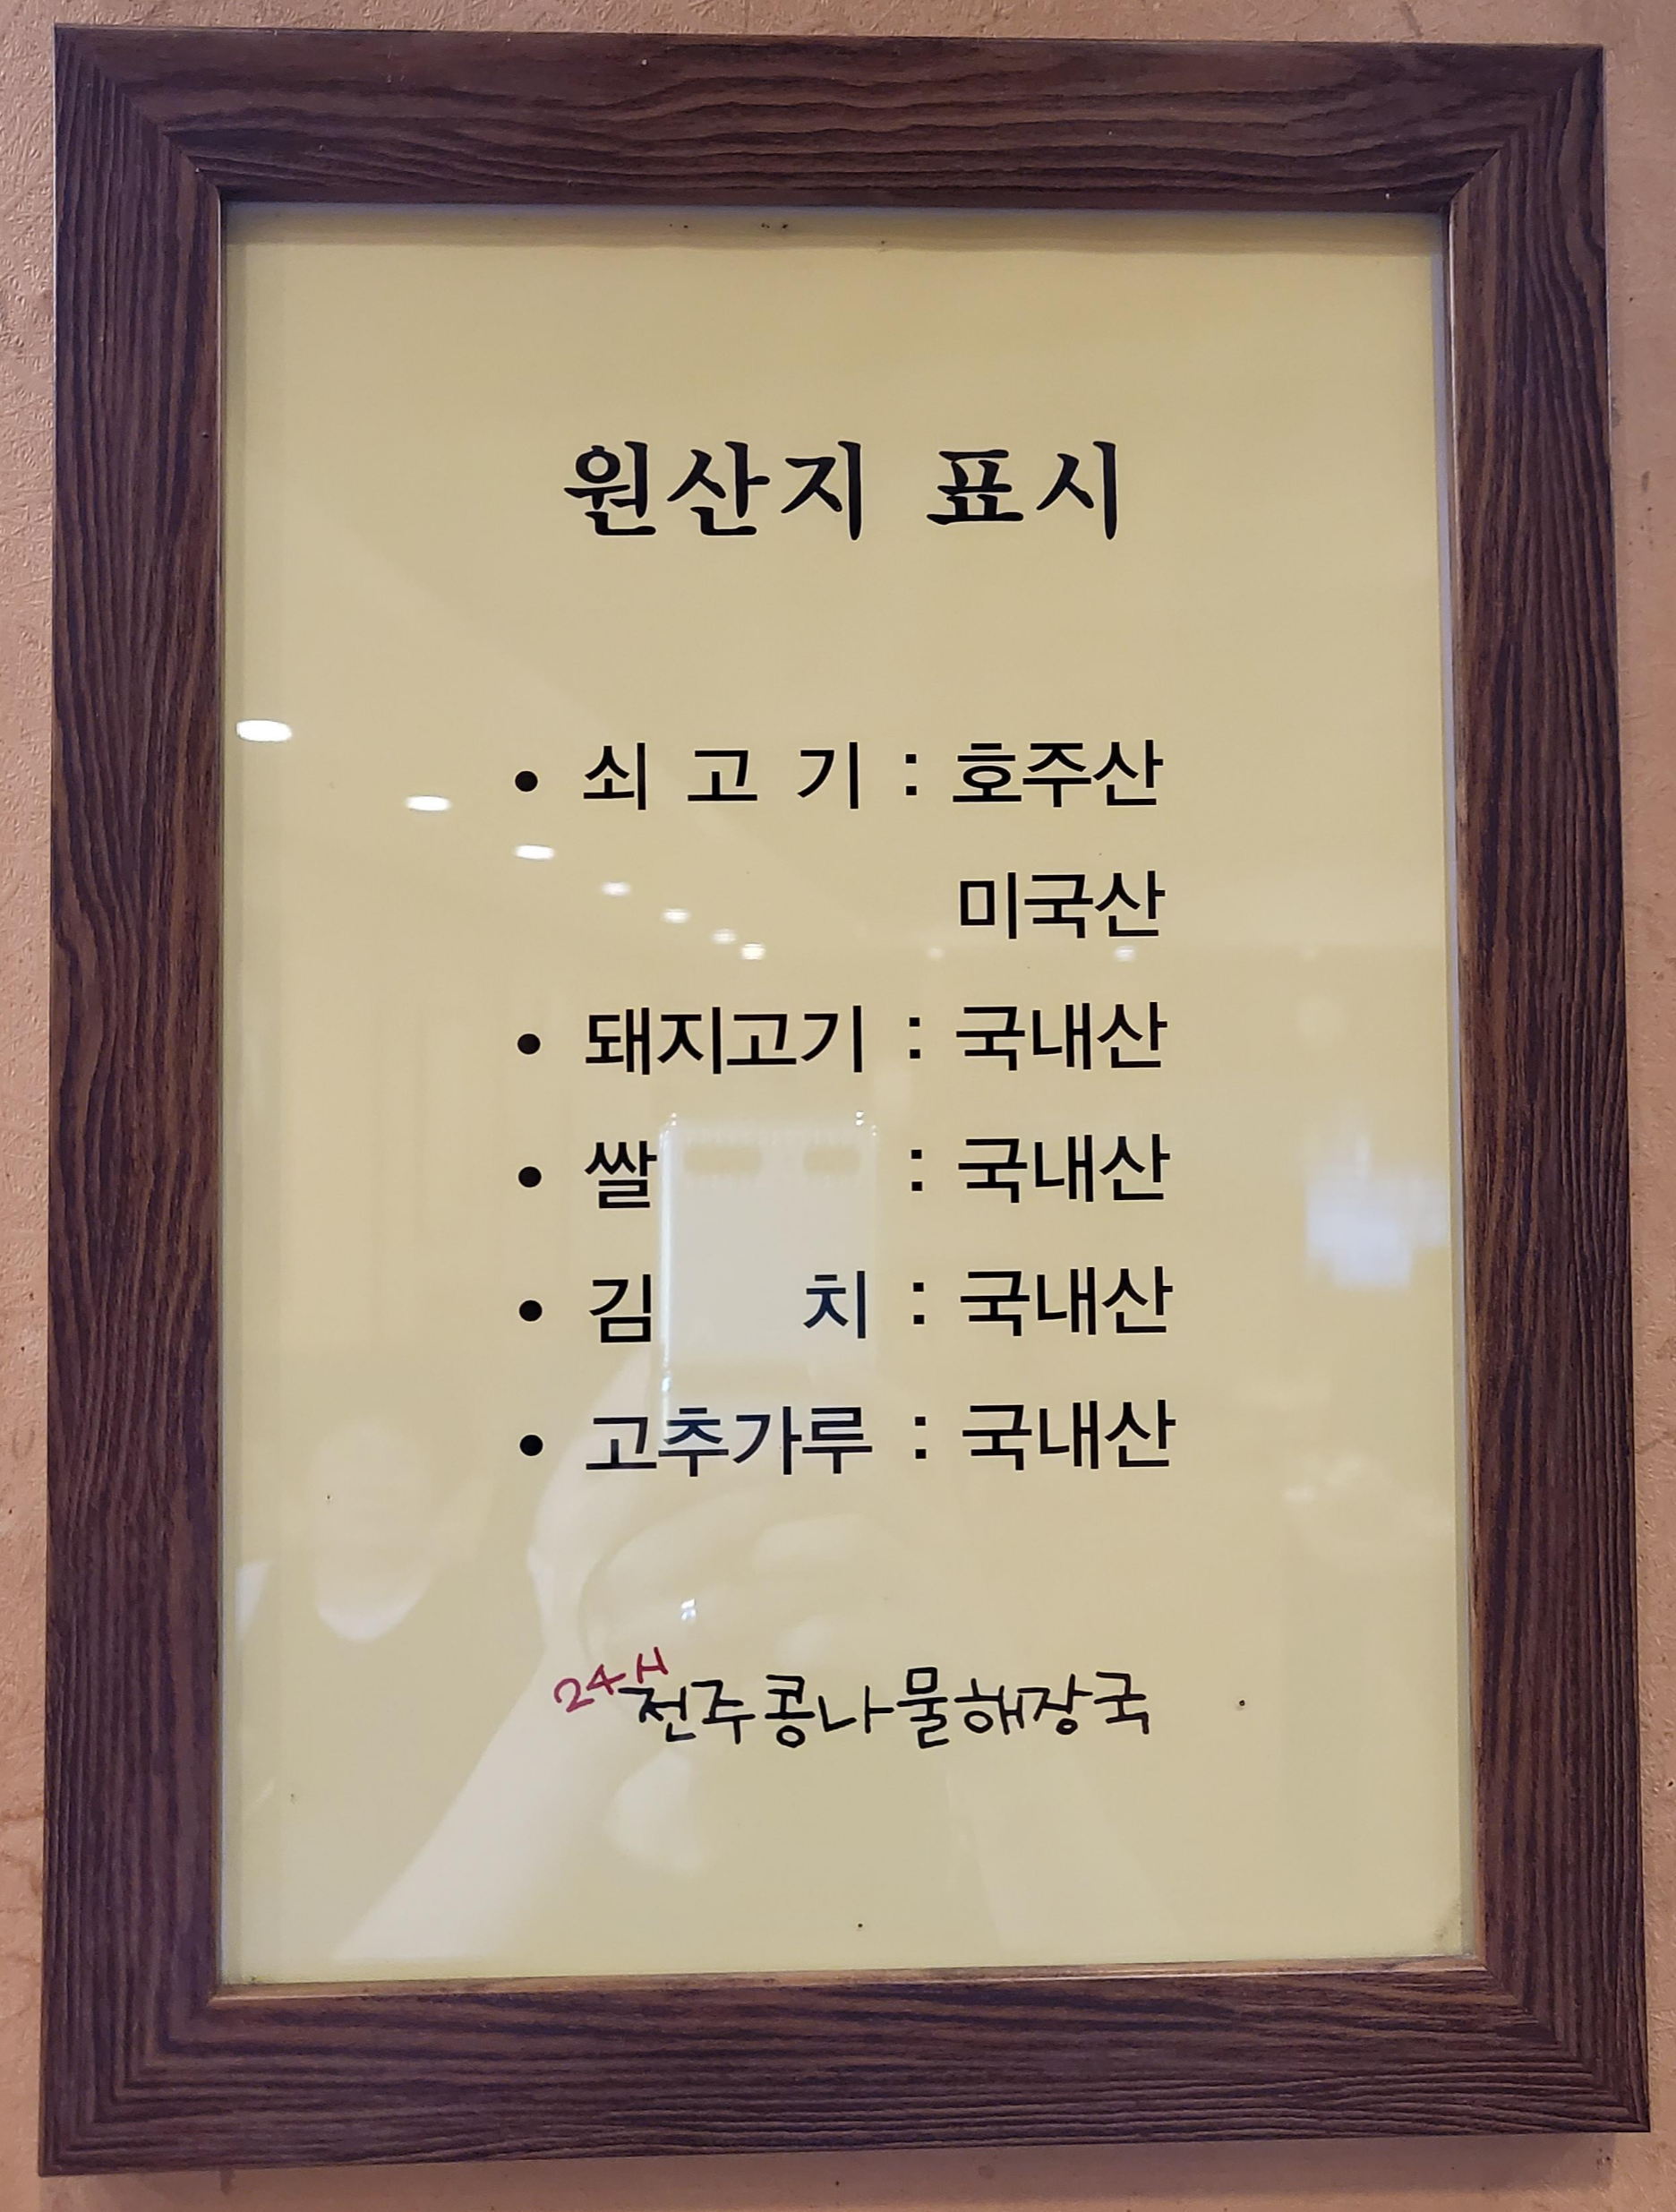 원산지 표시
• 쇠 고 기 : 호주산
미국산
• 돼지고기 : 국내산
• 쌀 : 국내산
• 김 치 : 국내산
• 고추가루 : 국내산
24H 전주콩나물해장국